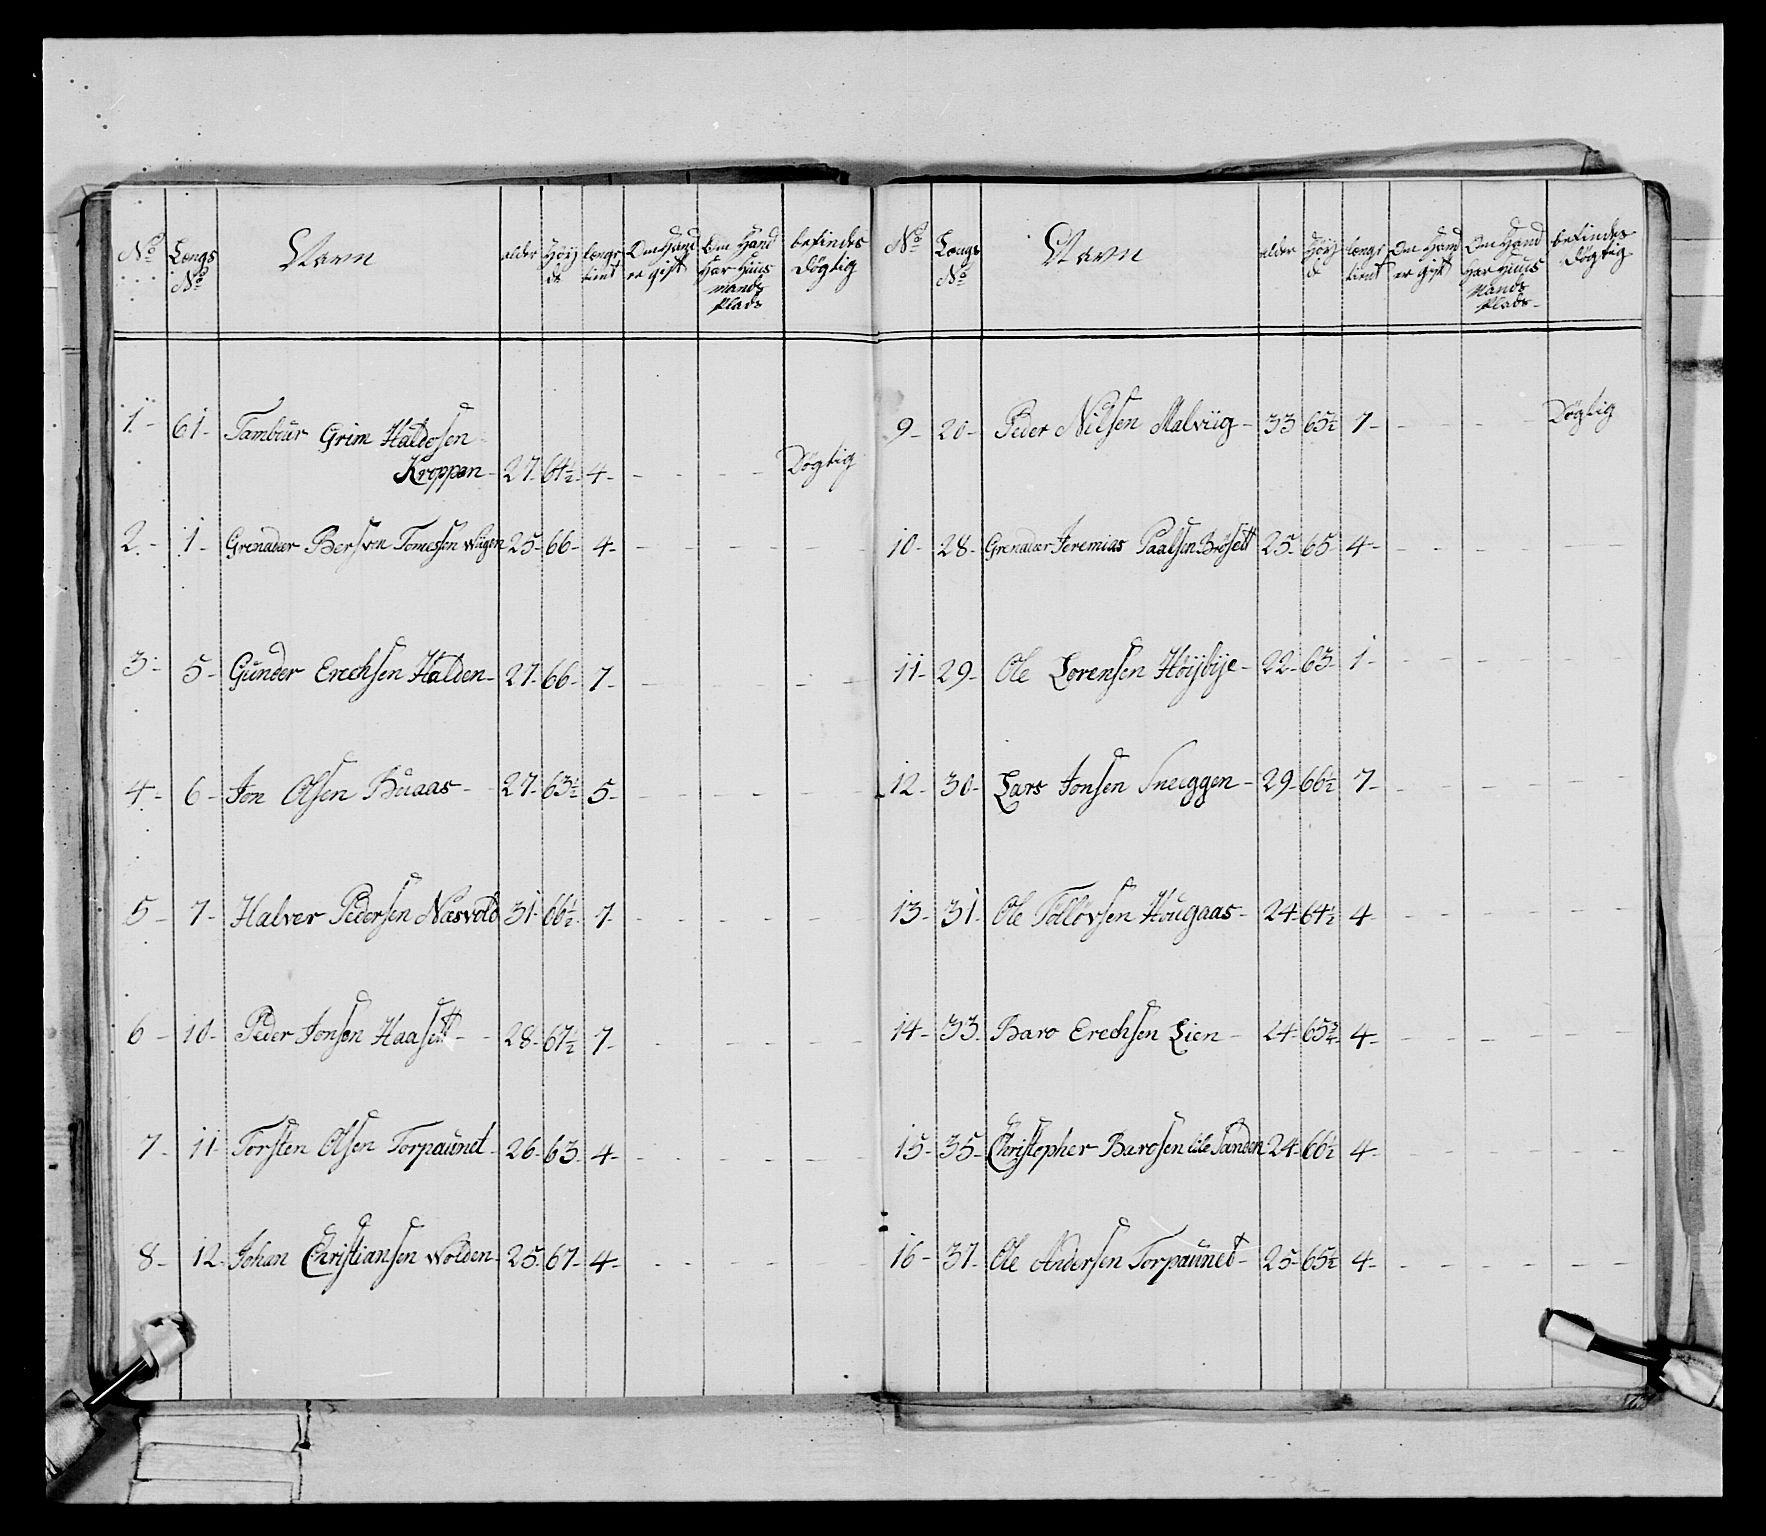 No Longs No Navn alder Höyde længe tient Om Hand er gift Om Hand Har Huus mands Plads befindes Dögtig
1- 61- Tambour Grim Haldosen
Kroppan- 27- 64½- 4- - - - - Dögtig
2- 1- Grenadeer Bersven Tomessen Wiigen 25- 66- 4- - - - - - -
3- 5- Gunder Erechsen Halden- 27- 66- 7- - - - - -
4- 6- Jon Olsen Buaas- 27- 63½- 5- - - - - - -
5- 7- Halver Pedersen Næsvold 31- 66½- 7- - - - - - -
6- 10- Peder Jonsen Haasett- 28- 67½- 7- - - - - - -
7- 11- Torsten Olsen Torpaunet- 26- 63- 4- - - - - - -
8- 12- Johan Christiansen Wolden- 25- 67- 4- - - - - - -
No Longs No Navn alder Höyde længe tient Om Hand er gift Om Hand Har Huus Mands Plads- befindes Dögtig
9- 20- Peder Nilsen Malviig- 33 65½ 7- - - - - Dögtig
10- 28- Grenadeer Jeremias Paalsen Brösett 25- 65 4- - - - - - -
11- 29- Ole Lorensen Höijbije- 22- 63- 1- - - - - - -
12- 30- Lars Jonsen Sneiggen- 29- 66½ 7- - - - - - -
13- 31- Ole Tollovsen Hougaas- 24- 64½ 4- - - - - - -
14- 33- Baro Erechsen Lien- 24- 65¾ 4- - - - - - -
15- 35- Christopher Barosen lille Sanden 24- 66½ 4- - - - - - -
16- 37- Ole Andersen Torpaunet- 25- 65½ 4- - - - - - -